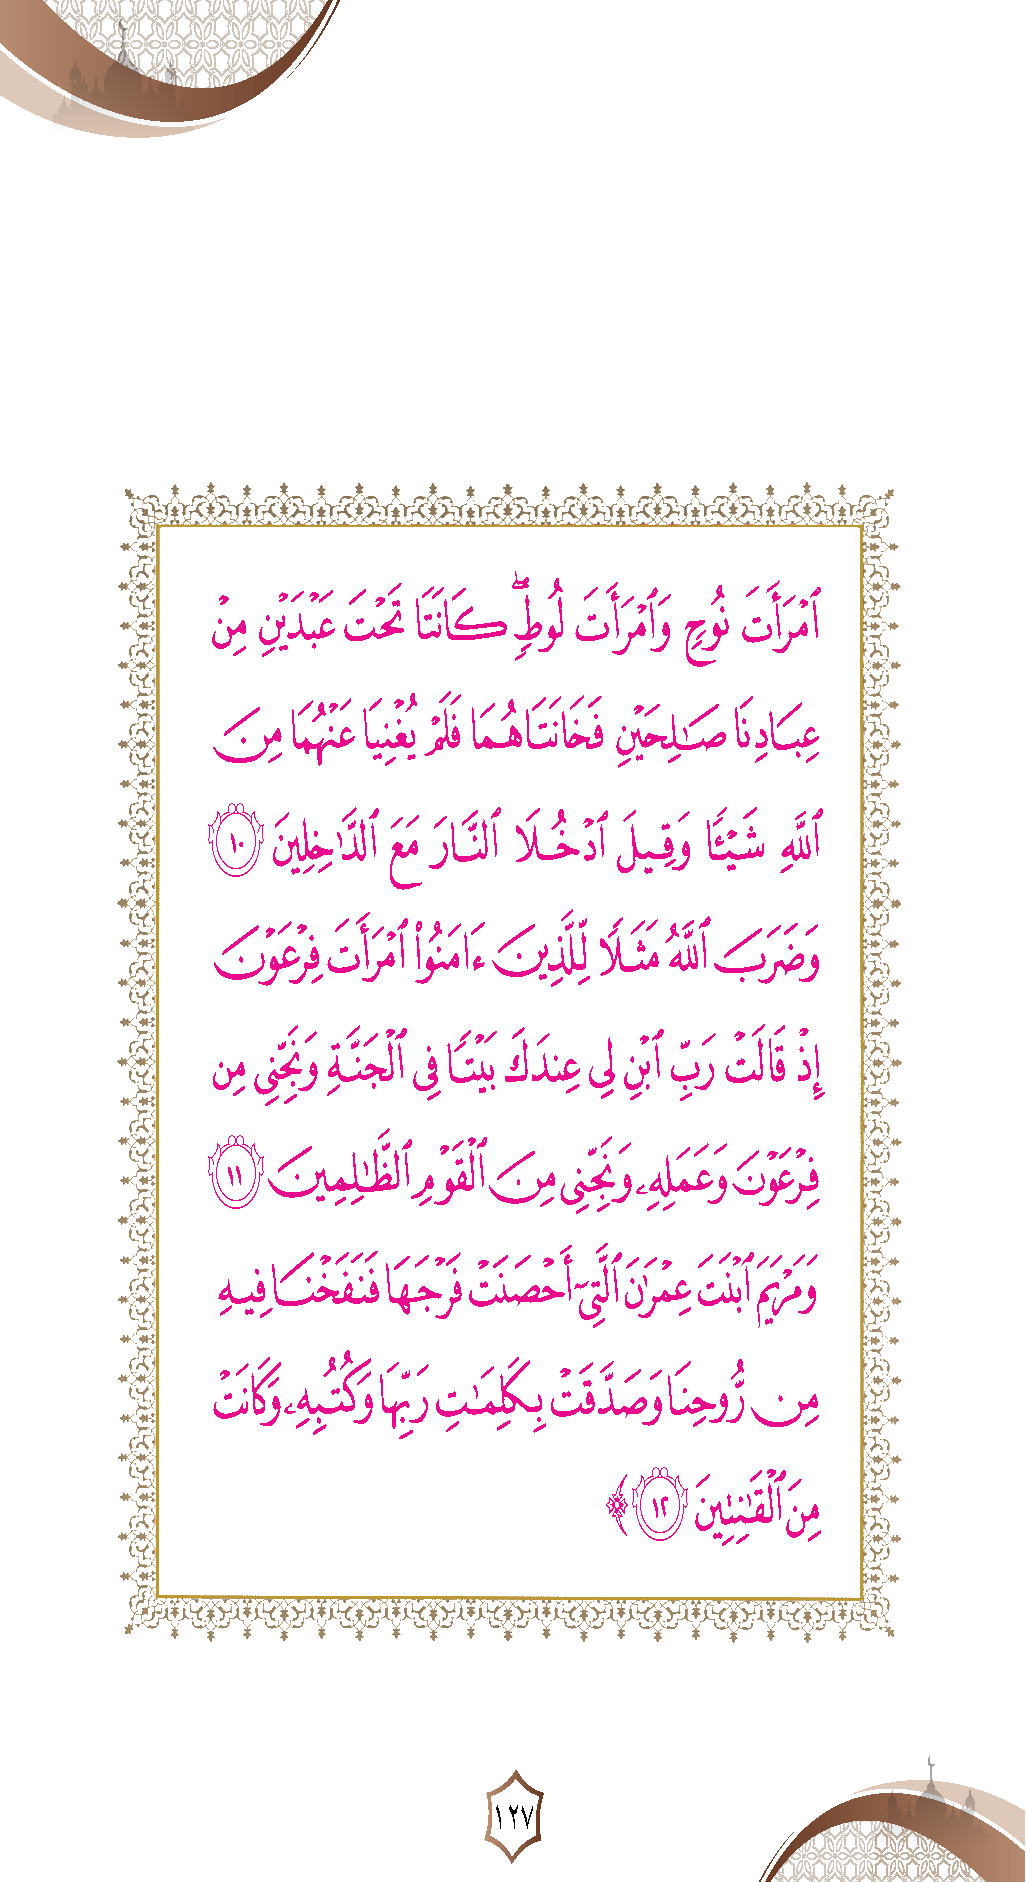 ٱمۡرَأَتَ نُوحٖ وَٱمۡرَأَتَ لُوطٖۖ كَانَتَا تَحۡتَ عَبۡدَيۡنِ مِنۡ
عِبَادِنَا صَٰلِحَيۡنِ فَخَانَتَاهُمَا فَلَمۡ يُغۡنِيَا عَنۡهُمَا مِنَ
ٱللَّهِ شَيۡـٔٗا وَقِيلَ ٱدۡخُلَا ٱلنَّارَ مَعَ ٱلدَّٰخِلِينَ ١٠
وَضَرَبَ ٱللَّهُ مَثَلٗا لِّلَّذِينَ ءَامَنُواْ ٱمۡرَأَتَ فِرۡعَوۡنَ
إِذۡ قَالَتۡ رَبِّ ٱبۡنِ لِي عِندَكَ بَيۡتٗا فِي ٱلۡجَنَّةِ وَنَجِّنِي مِن
فِرۡعَوۡنَ وَعَمَلِهِۦ وَنَجِّنِي مِنَ ٱلۡقَوۡمِ ٱلظَّٰلِمِينَ ١١
وَمَرۡيَمَ ٱبۡنَتَ عِمۡرَٰنَ ٱلَّتِيٓ أَحۡصَنَتۡ فَرۡجَهَا فَنَفَخۡنَا فِيهِ
مِن رُّوحِنَا وَصَدَّقَتۡ بِكَلِمَٰتِ رَبِّهَا وَكُتُبِهِۦ وَكَانَتۡ
مِنَ ٱلۡقَٰنِتِينَ ١٢ ﴾
١٢٧